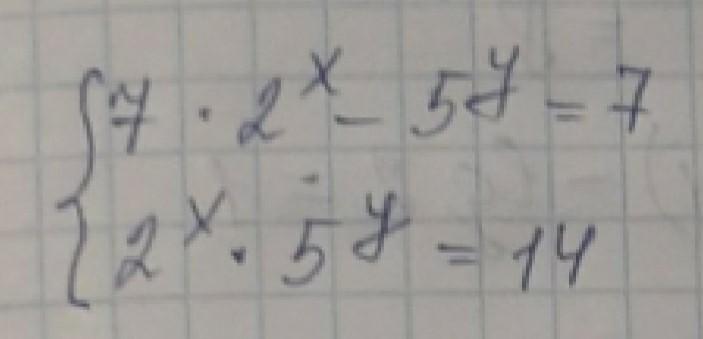 7 · 2^x - 5^y = 7
2^x · 5^y = 14